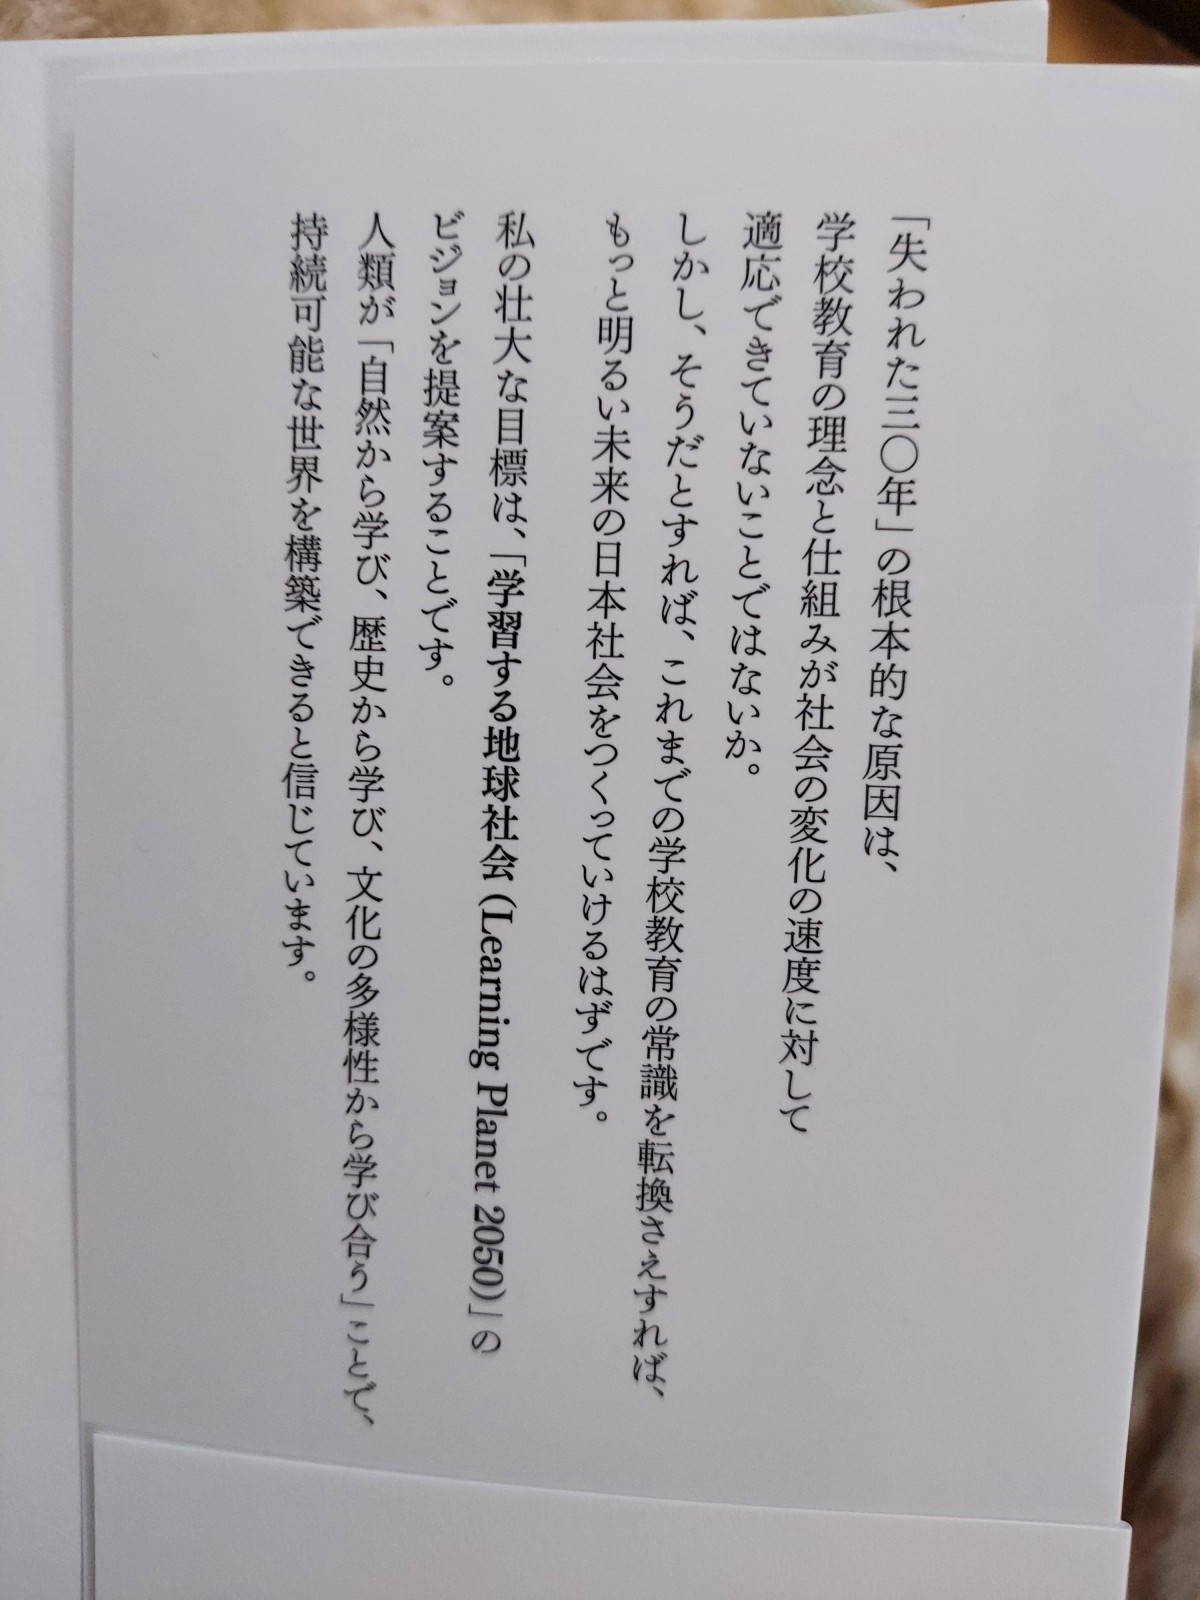 「失われた三〇年」の根本的な原因は、
学校教育の理念と仕組みが社会の変化の速度に対して
適応できていないことではないか。
しかし、そうだとすれば、これまでの学校教育の常識を転換さえすれば、
もっと明るい未来の日本社会をつくっていけるはずです。
私の壮大な目標は、「学習する地球社会(Learning Planet 2050)」の
ビジョンを提案することです。
人類が「自然から学び、歴史から学び、文化の多様性から学び合う」ことで、
持続可能な世界を構築できると信じています。